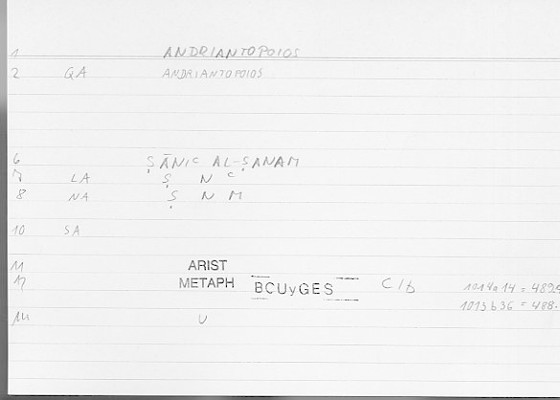 1 ANDRIANTOPOIOS
2 GA ANDRIANTOPOIOS
6 ṢĀNIC AL-ṢANAM
7 LA Ṣ N C
8 NA Ṣ N M
10 SA
11 ARIST
12 METAPH BCUyGES C/b 1014a14 =
1013b36 = 488.
14 U